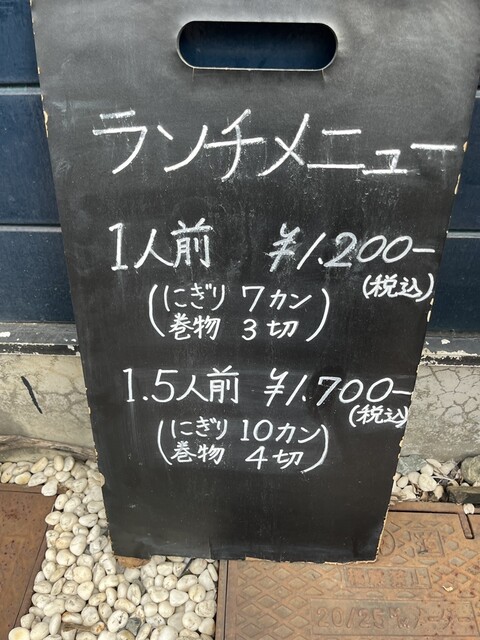 ランチメニュー
1人前 ¥1.200-
(税込)
(にぎり 7カン
巻物 3切)
1.5人前 ¥1.700-
(税込)
(にぎり 10カン
巻物 4切)